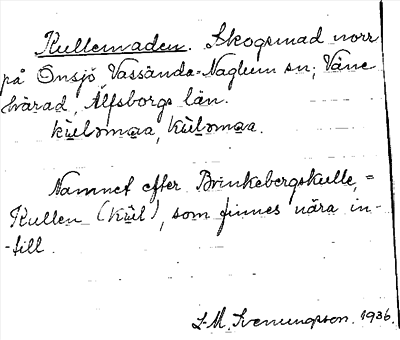 Kullemaden. Skogsmad norr
på Onsjö, Vassända-Naglum sn; Väne
härad, Älfsborgs län.
kùləmaa, Kùləmaa.
Namnet efter Brinkebergskulle, =
Kullen (kùl), som finnes nära in-
-till.
L-M. Svenungsson. 1936.